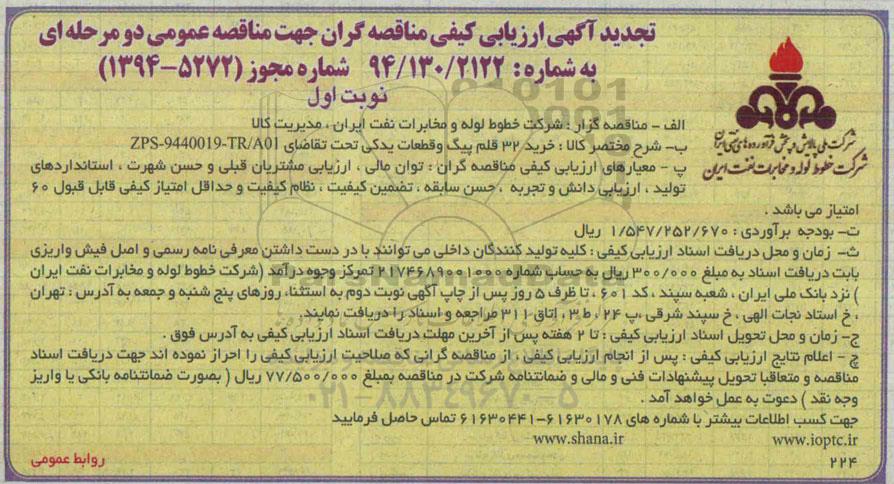 تجدید آگهی ارزیابی کیفی مناقصه گران جهت مناقصه عمومی دو مرحله ای
به شماره : ۹۴/۱۳۰/۲۱۲۲ شماره مجوز (۵۲۷۲-۱۳۹۴)
نوبت اول
شرکت ملی پالایش و پخش فرآورده های نفتی ایران
شرکت خطوط لوله و مخابرات نفت ایران
الف - مناقصه گزار : شرکت خطوط لوله و مخابرات نفت ایران ، مدیریت کالا
ب- شرح مختصر کالا : خرید ۳۲ قلم پیگ وقطعات یدکی تحت تقاضای ZPS-9440019-TR/A01
پ - معیارهای ارزیابی کیفی مناقصه گران : توان مالی ، ارزیابی مشتریان قبلی و حسن شهرت ، استانداردهای
تولید ، ارزیابی دانش و تجربه ، حسن سابقه ، تضمین کیفیت ، نظام کیفیت و حداقل امتیاز کیفی قابل قبول ۶۰
امتیاز می باشد .
ت- بودجه برآوردی : ۱/۵۴۷/۲۵۲/۶۷۰ ریال
ث- زمان و محل دریافت اسناد ارزیابی کیفی : کلیه تولید کنندگان داخلی می توانند با در دست داشتن معرفی نامه رسمی و اصل فیش واریزی
بابت دریافت اسناد به مبلغ ۳۰۰/۰۰۰ ریال به حساب شماره ۲۱۷۴۶۸۹۰۰۱۰۰۰ تمرکز وجوه درآمد (شرکت خطوط لوله و مخابرات نفت ایران
) نزد بانک ملی ایران ، شعبه سپند ، کد ۶۰۱ ، تا ظرف ۵ روز پس از چاپ آگهی نوبت دوم به استثناء روزهای پنج شنبه و جمعه به آدرس : تهران
، خ استاد نجات الهی ، خ سپند شرقی ،پ ۲۴ ، ط ۳ ، اتاق ۳۱۱ مراجعه و اسناد را دریافت نمایند.
ج- زمان و محل تحویل اسناد ارزیابی کیفی : تا ۲ هفته پس از آخرین مهلت دریافت اسناد ارزیابی کیفی به آدرس فوق .
چ - اعلام نتایج ارزیابی کیفی : پس از انجام ارزیابی کیفی ، از مناقصه گرانی که صلاحیت ارزیابی کیفی را احراز نموده اند جهت دریافت اسناد
مناقصه و متعاقبا تحویل پیشنهادات فنی و مالی و ضمانتنامه شرکت در مناقصه بمبلغ ۷۷/۵۰۰/۰۰۰ ریال ( بصورت ضمانتنامه بانکی یا واریز
وجه نقد ) دعوت به عمل خواهد آمد .
جهت کسب اطلاعات بیشتر با شماره های ۶۱۶۳۰۱۷۸-۶۱۶۳۰۴۴۱ تماس حاصل فرمایید
www.ioptc.ir www.shana.ir
۲۲۴ روابط عمومی
۰۲۱-۸۸۳۴۹۶۷۰-۵